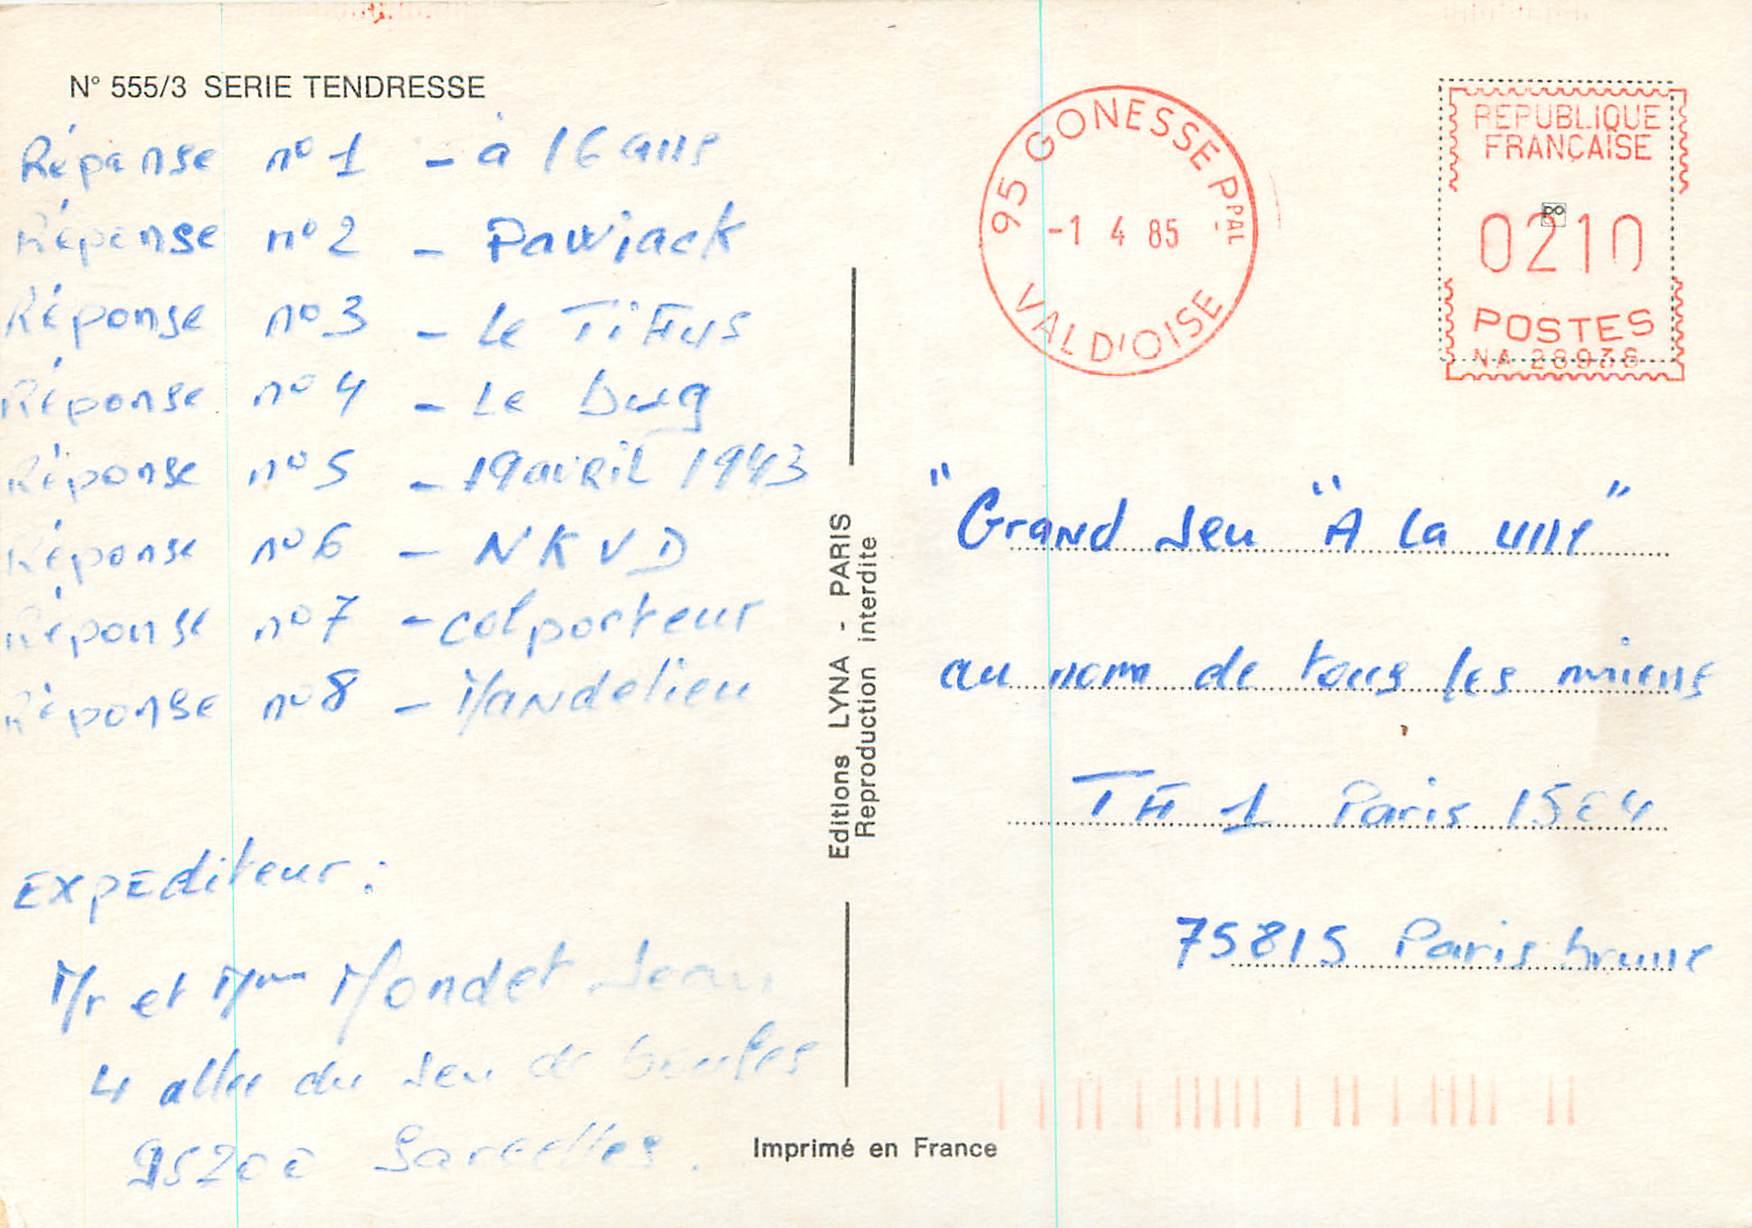 N° 555/3 SERIE TENDRESSE
Réponse n°1 - à 16 ans
Réponse n°2 - Pawiack
Réponse n°3 - Le TiFus
Réponse n°4 - Le Dug
Réponse n°5 - 19 avril 1943
Réponse n°6 - NKVD
Réponse n°7 - colporteur
Réponse n°8 - Mandelieu
Expediteur :
Mr et Mme Mondet Jean
4 allee du Jeu de boules
95200 Sarcelles.
Editions LYNA - PARIS
Reproduction interdite
Imprimé en France
95 GONESSE PPAL
-1 4 85
VAL D'OISE
REPUBLIQUE
FRANÇAISE
0210
POSTES
NA 28938
"Grand Jeu "A la une"
au nom de tous les miens
TF 1 Paris 15E4
75815 Paris brune